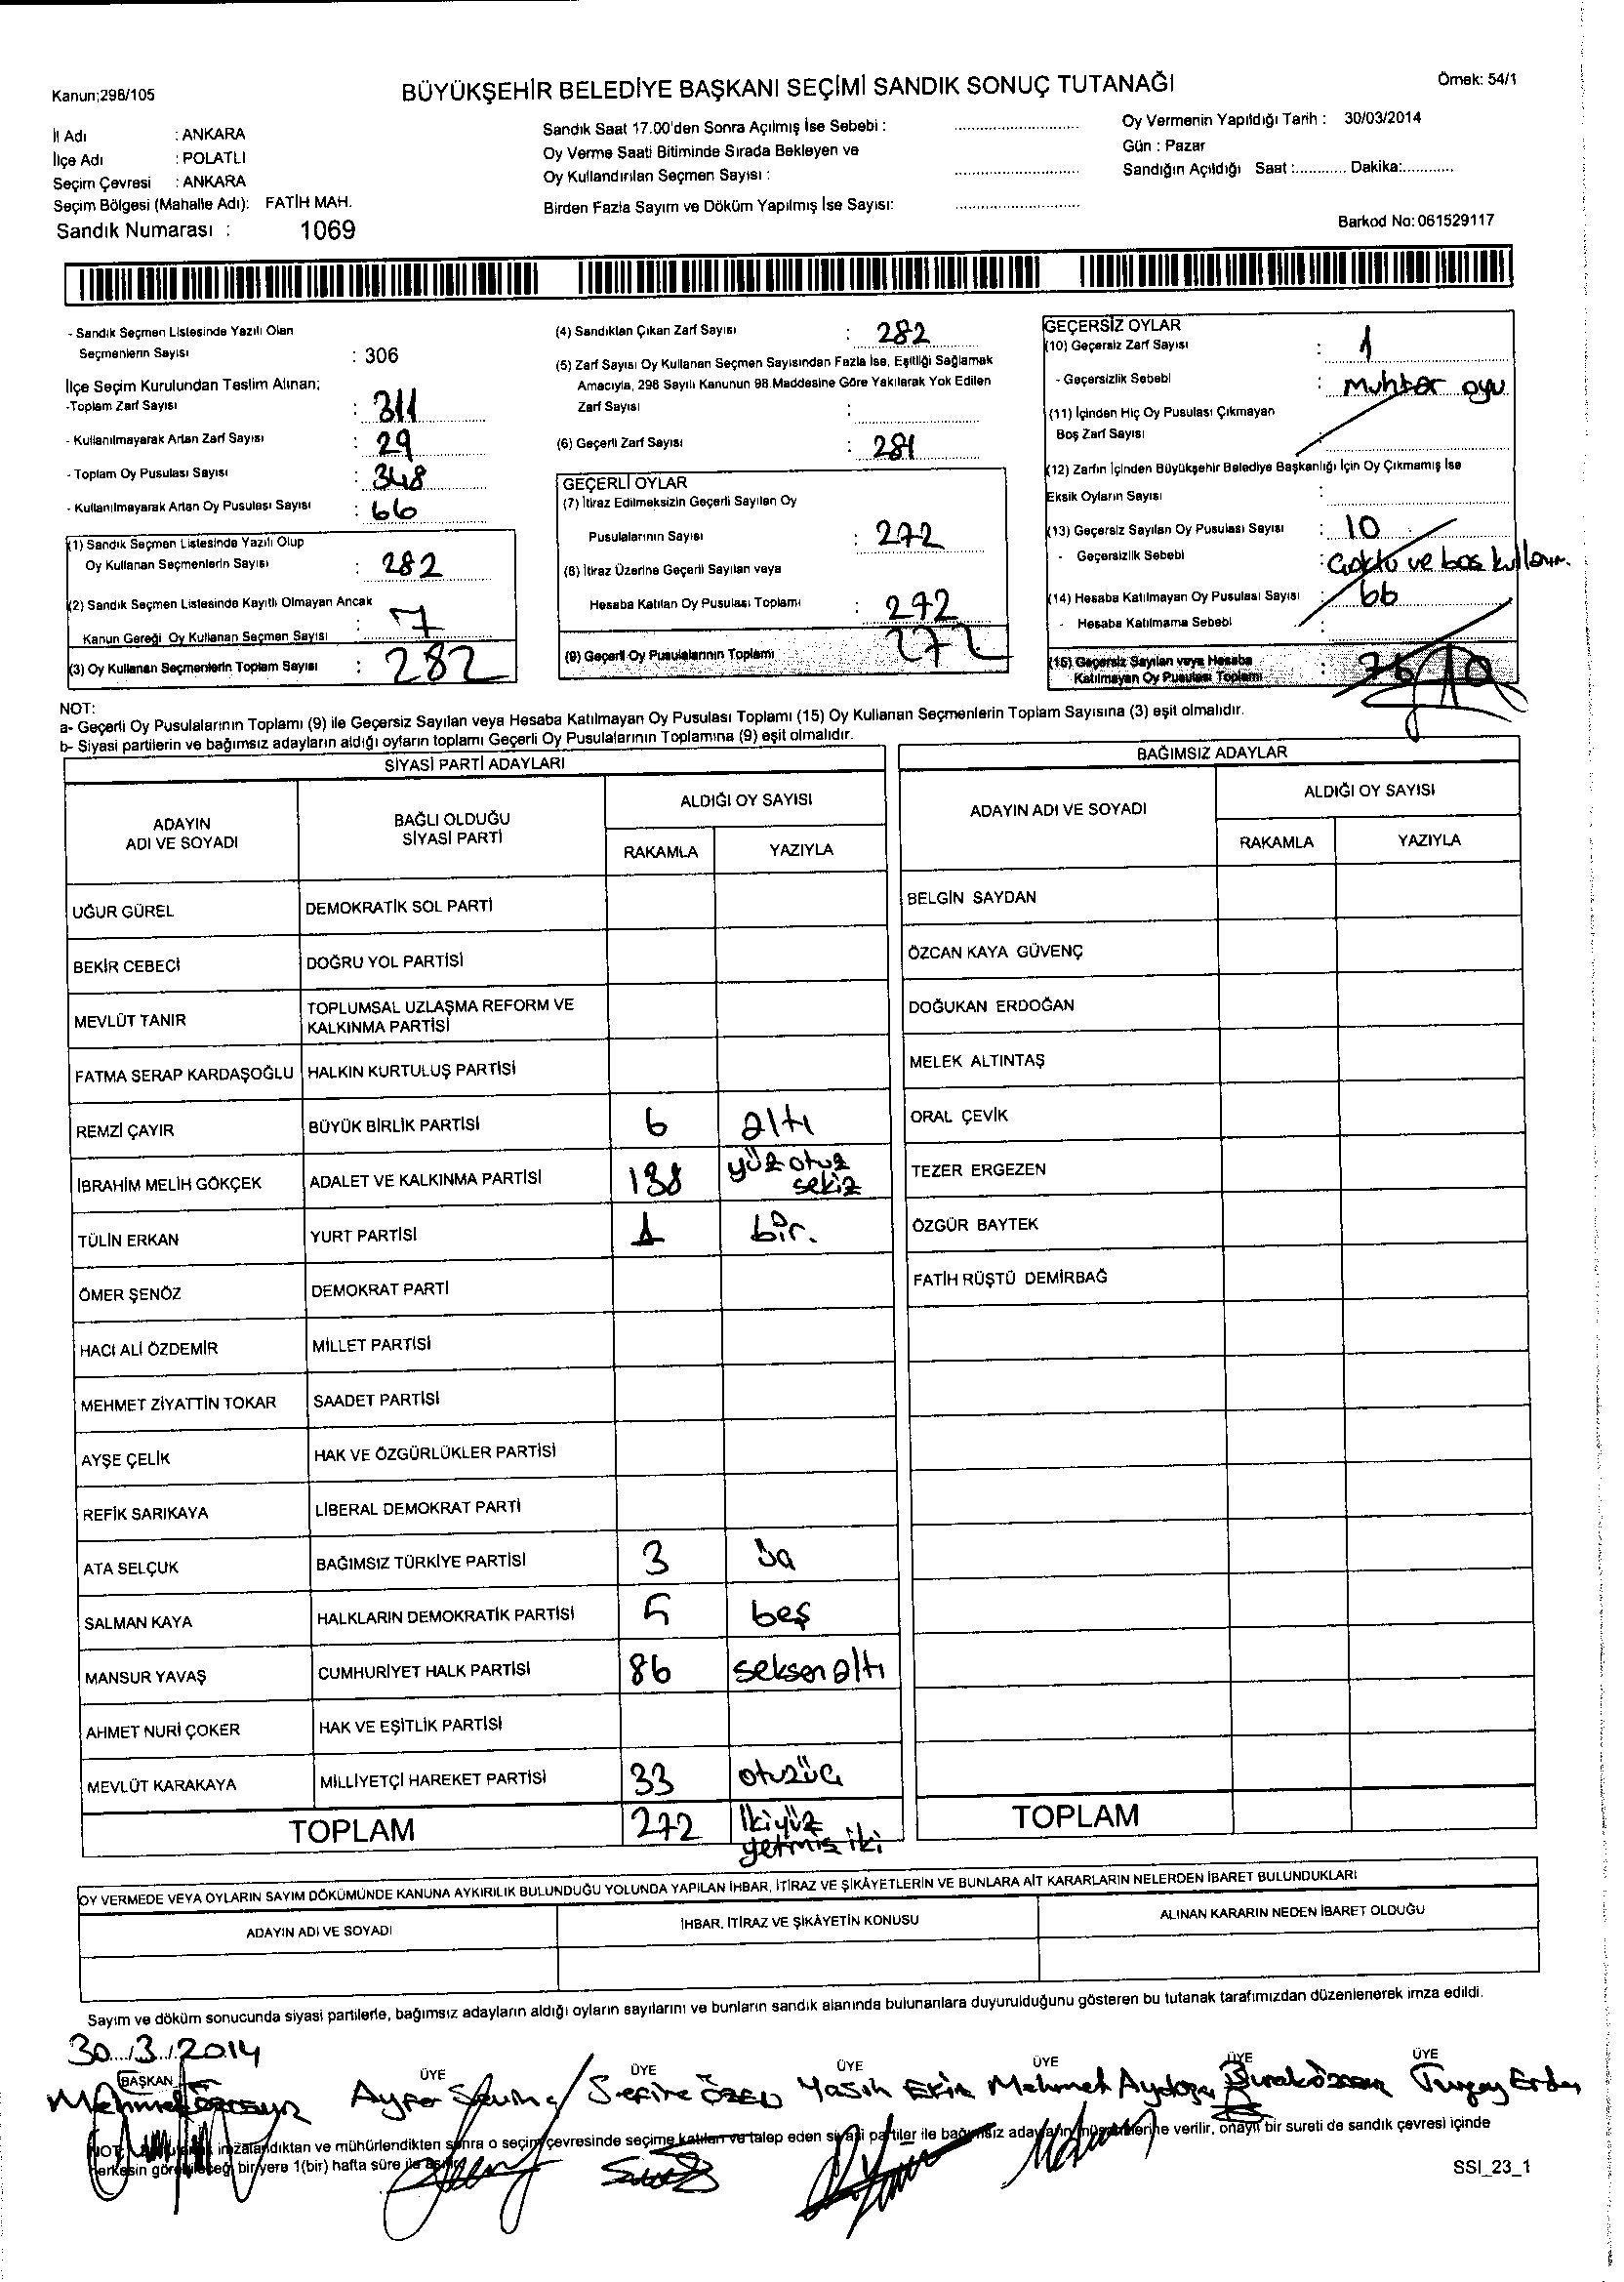 Kanun;298/105
BÜYÜKŞEHİR BELEDİYE BAŞKANI SEÇİMİ SANDIK SONUÇ TUTANAĞI
Örnek: 54/1
İl Adı : ANKARA
İlçe Adı : POLATLI
Seçim Çevresi : ANKARA
Seçim Bölgesi (Mahalle Adı): FATİH MAH.
Sandık Numarası : 1069
Sandık Saat 17.00'den Sonra Açılmış İse Sebebi :
Oy Verme Saati Bitiminde Sırada Bekleyen ve
Oy Kullandırılan Seçmen Sayısı :
Birden Fazla Sayım ve Döküm Yapılmış İse Sayısı:
Oy Vermenin Yapıldığı Tarih : 30/03/2014
Gün : Pazar
Sandığın Açıldığı Saat :............ Dakika:............
Barkod No: 061529117
- Sandık Seçmen Listesinde Yazılı Olan
Seçmenlerin Sayısı : 306
İlçe Seçim Kurulundan Teslim Alınan;
-Toplam Zarf Sayısı : 311
- Kullanılmayarak Artan Zarf Sayısı : 29
- Toplam Oy Pusulası Sayısı : 348
- Kullanılmayarak Artan Oy Pusulası Sayısı : 66
(1) Sandık Seçmen Listesinde Yazılı Olup
Oy Kullanan Seçmenlerin Sayısı : 282
(2) Sandık Seçmen Listesinde Kayıtlı Olmayan Ancak
Kanun Gereği Oy Kullanan Seçmen Sayısı :
(3) Oy Kullanan Seçmenlerin Toplam Sayısı : 282
(4) Sandıktan Çıkan Zarf Sayısı : 282
(5) Zarf Sayısı Oy Kullanan Seçmen Sayısından Fazla İse, Eşitliği Sağlamak
Amacıyla, 298 Sayılı Kanunun 98.Maddesine Göre Yakılarak Yok Edilen
Zarf Sayısı :
(6) Geçerli Zarf Sayısı : 281
GEÇERLİ OYLAR
(7) İtiraz Edilmeksizin Geçerli Sayılan Oy
Pusulalarının Sayısı : 272
(8) İtiraz Üzerine Geçerli Sayılan veya
Hesaba Katılan Oy Pusulası Toplamı : 272
(9) Geçerli Oy Pusulalarının Toplamı 272
GEÇERSİZ OYLAR
(10) Geçersiz Zarf Sayısı : 1
- Geçersizlik Sebebi : Muhtar oyu
(11) İçinden Hiç Oy Pusulası Çıkmayan
Boş Zarf Sayısı :
(12) Zarfın İçinden Büyükşehir Belediye Başkanlığı İçin Oy Çıkmamış İse
Eksik Oyların Sayısı :
(13) Geçersiz Sayılan Oy Pusulası Sayısı : 10
- Geçersizlik Sebebi : ve boş
(14) Hesaba Katılmayan Oy Pusulası Sayısı : 66
- Hesaba Katılmama Sebebi :
(15) Geçersiz Sayılan veya Hesaba
Katılmayan Oy Pusulası Toplamı : 10
NOT:
a- Geçerli Oy Pusulalarının Toplamı (9) ile Geçersiz Sayılan veya Hesaba Katılmayan Oy Pusulası Toplamı (15) Oy Kullanan Seçmenlerin Toplam Sayısına (3) eşit olmalıdır.
b- Siyasi partilerin ve bağımsız adayların aldığı oyların toplamı Geçerli Oy Pusulalarının Toplamına (9) eşit olmalıdır.
SİYASİ PARTİ ADAYLARI
ADAYIN ADI VE SOYADI
BAĞLI OLDUĞU SİYASİ PARTİ
ALDIĞI OY SAYISI
RAKAMLA YAZIYLA
UĞUR GÜREL DEMOKRATİK SOL PARTİ
BEKİR CEBECİ DOĞRU YOL PARTİSİ
MEVLÜT TANIR TOPLUMSAL UZLAŞMA REFORM VE KALKINMA PARTİSİ
FATMA SERAP KARDAŞOĞLU HALKIN KURTULUŞ PARTİSİ
REMZİ ÇAYIR BÜYÜK BİRLİK PARTİSİ 6 altı
İBRAHİM MELİH GÖKÇEK ADALET VE KALKINMA PARTİSİ 138 yüz otuz sekiz
TÜLİN ERKAN YURT PARTİSİ 1 bir.
ÖMER ŞENÖZ DEMOKRAT PARTİ
HACI ALİ ÖZDEMİR MİLLET PARTİSİ
MEHMET ZİYATTİN TOKAR SAADET PARTİSİ
AYŞE ÇELİK HAK VE ÖZGÜRLÜKLER PARTİSİ
REFİK SARIKAYA LİBERAL DEMOKRAT PARTİ
ATA SELÇUK BAĞIMSIZ TÜRKİYE PARTİSİ 3 üç
SALMAN KAYA HALKLARIN DEMOKRATİK PARTİSİ 5 beş
MANSUR YAVAŞ CUMHURİYET HALK PARTİSİ 86 seksen altı
AHMET NURİ ÇOKER HAK VE EŞİTLİK PARTİSİ
MEVLÜT KARAKAYA MİLLİYETÇİ HAREKET PARTİSİ 33 otuzüç
TOPLAM 272 İkiyüz yetmiş iki
BAĞIMSIZ ADAYLAR
ADAYIN ADI VE SOYADI
ALDIĞI OY SAYISI
RAKAMLA YAZIYLA
BELGİN SAYDAN
ÖZCAN KAYA GÜVENÇ
DOĞUKAN ERDOĞAN
MELEK ALTINTAŞ
ORAL ÇEVİK
TEZER ERGEZEN
ÖZGÜR BAYTEK
FATİH RÜŞTÜ DEMİRBAĞ
TOPLAM
OY VERMEDE VEYA OYLARIN SAYIM DÖKÜMÜNDE KANUNA AYKIRILIK BULUNDUĞU YOLUNDA YAPILAN İHBAR, İTİRAZ VE ŞİKÂYETLERİN VE BUNLARA AİT KARARLARIN NELERDEN İBARET BULUNDUKLARI
ADAYIN ADI VE SOYADI
İHBAR, İTİRAZ VE ŞİKÂYETİN KONUSU
ALINAN KARARIN NEDEN İBARET OLDUĞU
Sayım ve döküm sonucunda siyasi partilerle, bağımsız adayların aldığı oyların sayılarını ve bunların sandık alanında bulunanlara duyurulduğunu gösteren bu tutanak tarafımızdan düzenlenerek imza edildi.
30../3./2014
BAŞKAN ÜYE ÜYE ÜYE ÜYE ÜYE ÜYE
Mehmet Ayfer ÖZEN Yasin Mehmet Turgay
NOT: imzalandıktan ve mühürlendikten sonra o seçim çevresinde seçime katılan ve talep eden siyasi partiler ile bağımsız adayların müşahitlerine verilir, onaylı bir sureti de sandık çevresi içinde
herkesin görebileceği bir yere 1(bir) hafta süre ile asılır.
SSI_23_1